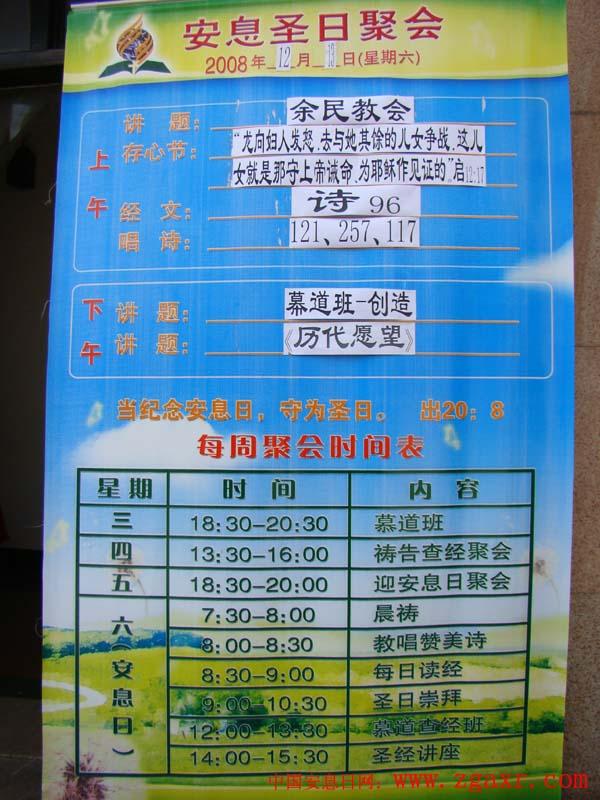 安息圣日聚会
2008年 12 月 13 日(星期六)
上午
讲 题: 余民教会
存心节: "龙向妇人发怒.去与她其馀的儿女争战.这儿
女就是那守上帝诫命.为耶稣作见证的"启12:17
经 文: 诗 96
唱 诗: 121、257、117
下午
讲 题: 慕道班-创造
讲 题: 《历代愿望》
当纪念安息日,守为圣日。 出20:8
每周聚会时间表
星期 时 间 内 容
三 18:30-20:30 慕道班
四 13:30-16:00 祷告查经聚会
五 18:30-20:00 迎安息日聚会
六(安息日) 7:30-8:00 晨祷
8:00-8:30 教唱赞美诗
8:30-9:00 每日读经
9:00-10:30 圣日崇拜
12:00-13:30 慕道查经班
14:00-15:30 圣经讲座
中国安息日网:www.zgaxr.com